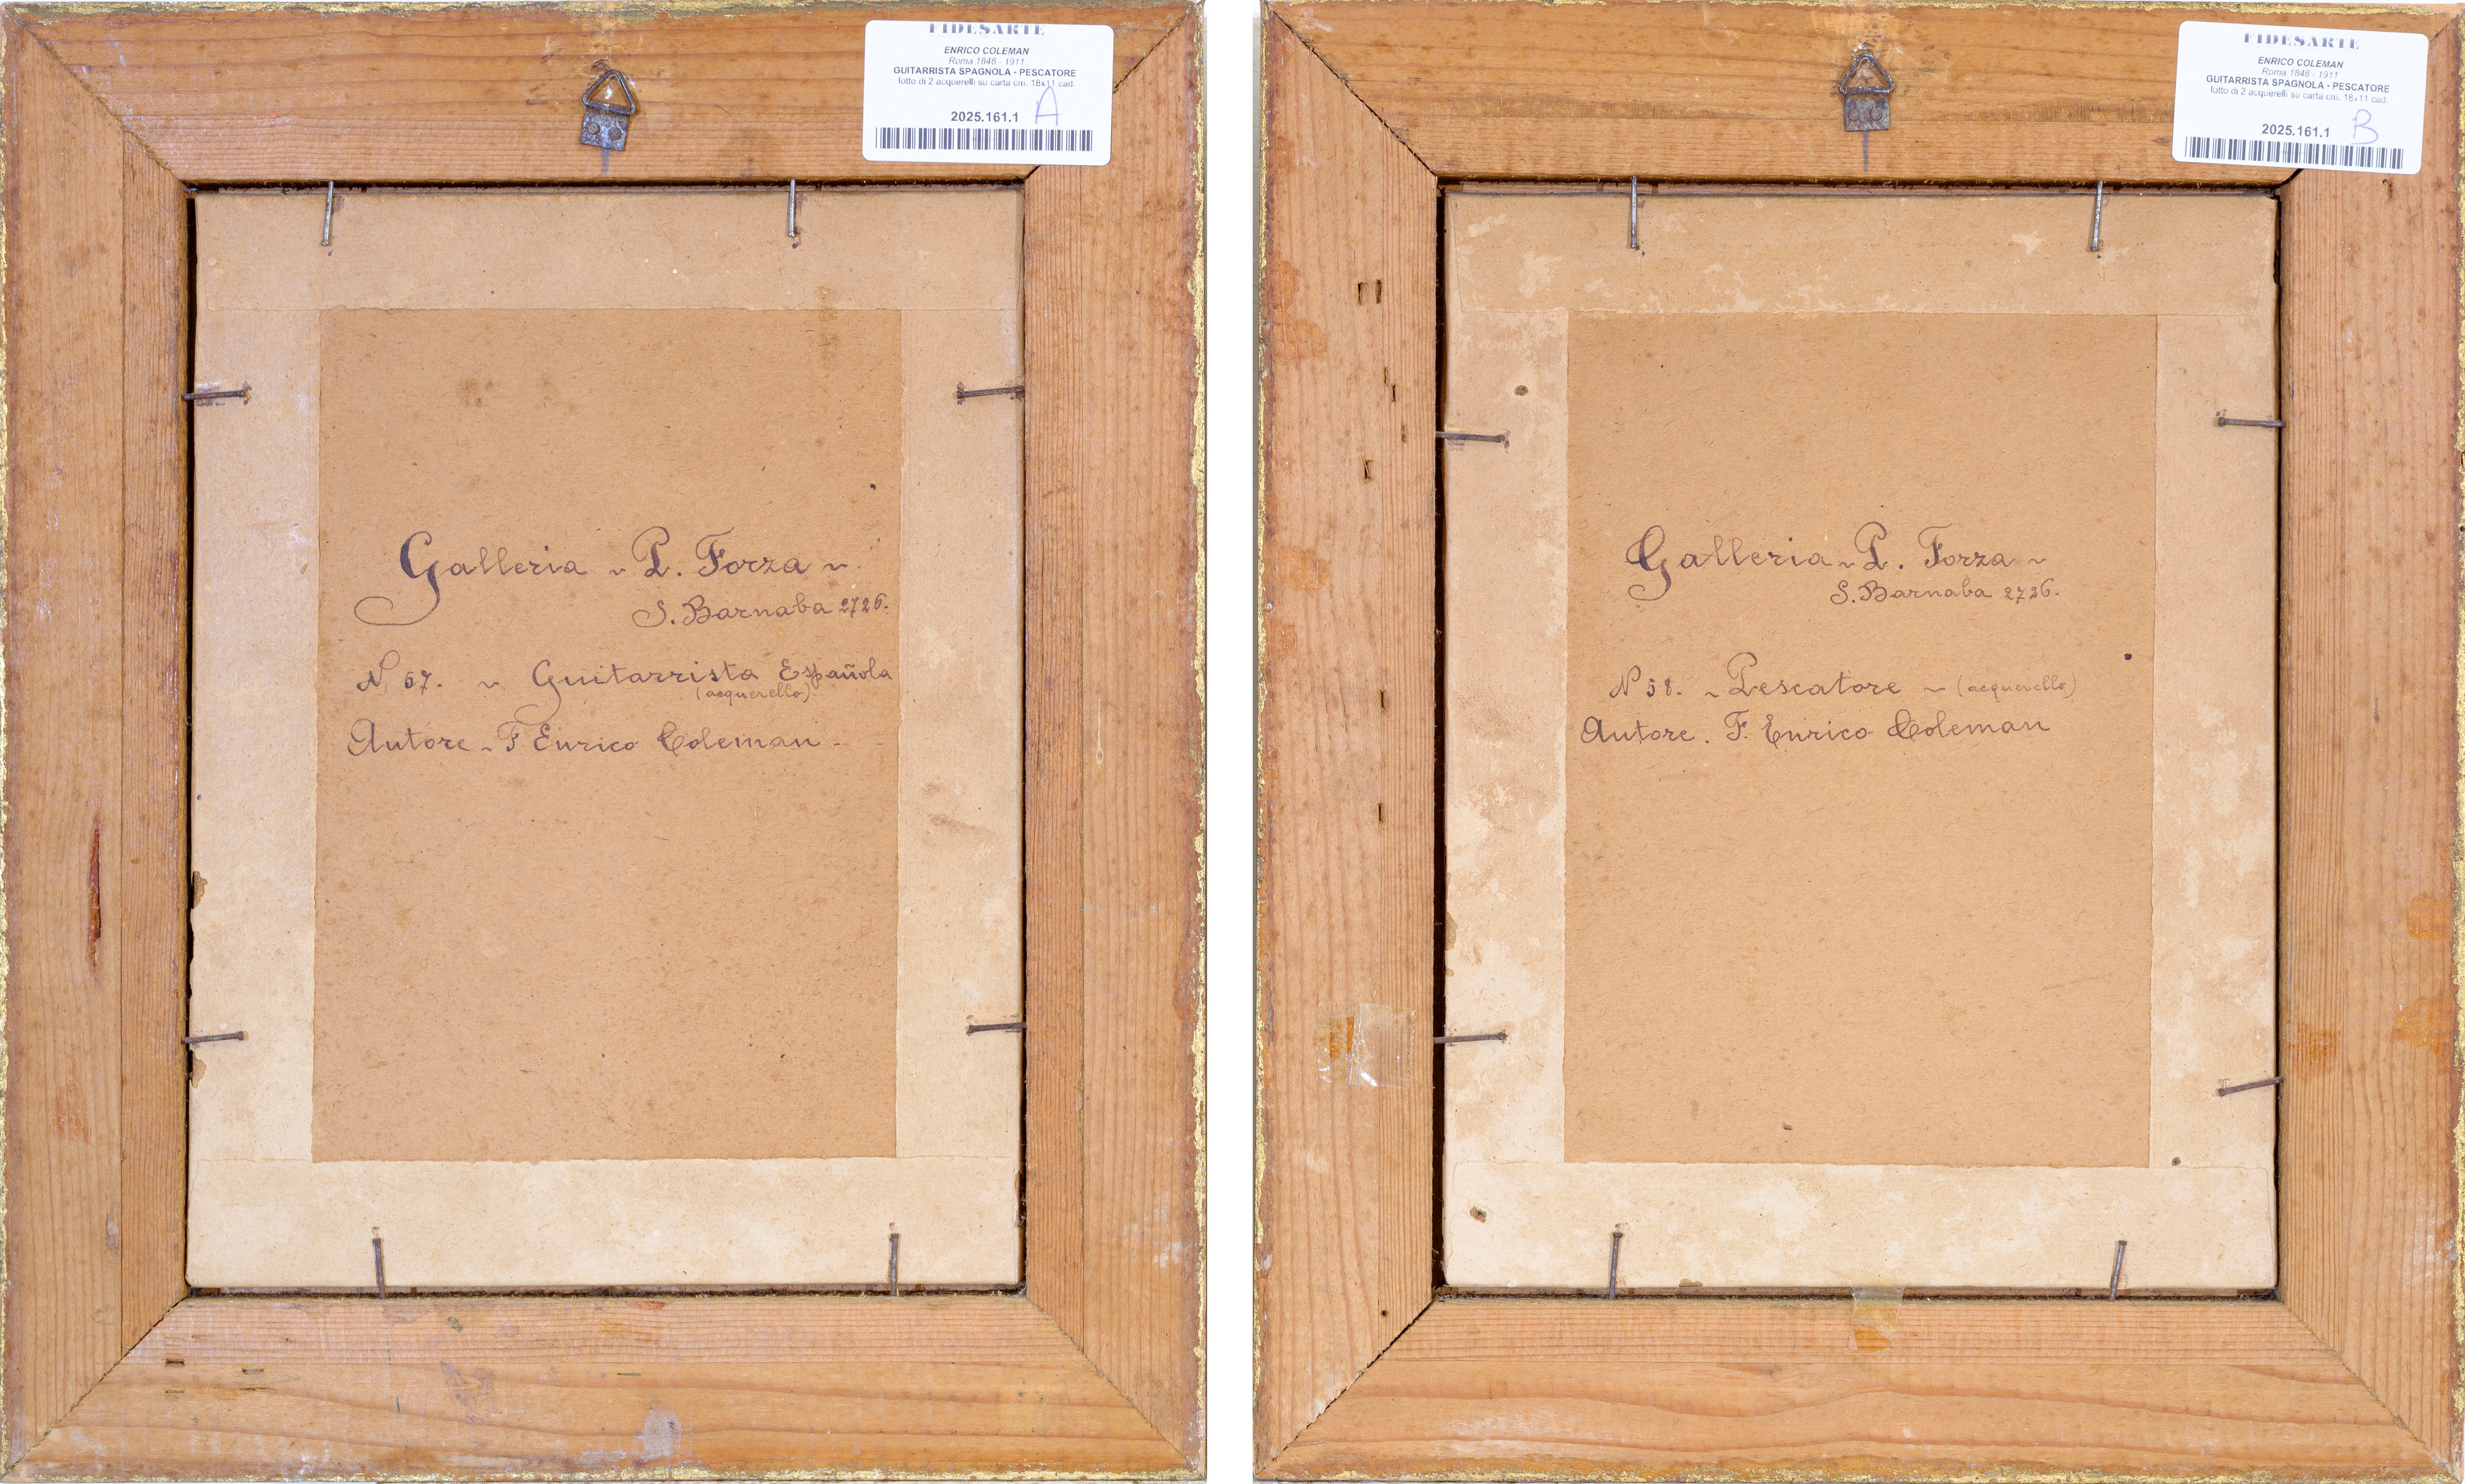 FIDESARTE
ENRICO COLEMAN
Roma 1846 - 1911
GUITARRISTA SPAGNOLA - PESCATORE
lotto di 2 acquerelli su carta cm. 18x11 cad.
2025.161.1 A
Galleria ~ P. Forza ~
S. Barnaba 2726.
N 57. ~ Guitarrista Española
(acquerello).
Autore ~ F Enrico Coleman -
FIDESARTE
ENRICO COLEMAN
Roma 1846 - 1911
GUITARRISTA SPAGNOLA - PESCATORE
lotto di 2 acquerelli su carta cm. 18x11 cad.
2025.161.1 B
Galleria ~ P. Forza ~
S. Barnaba 2726.
N 58. ~ Pescatore ~ (acquerello)
Autore. F. Enrico Coleman